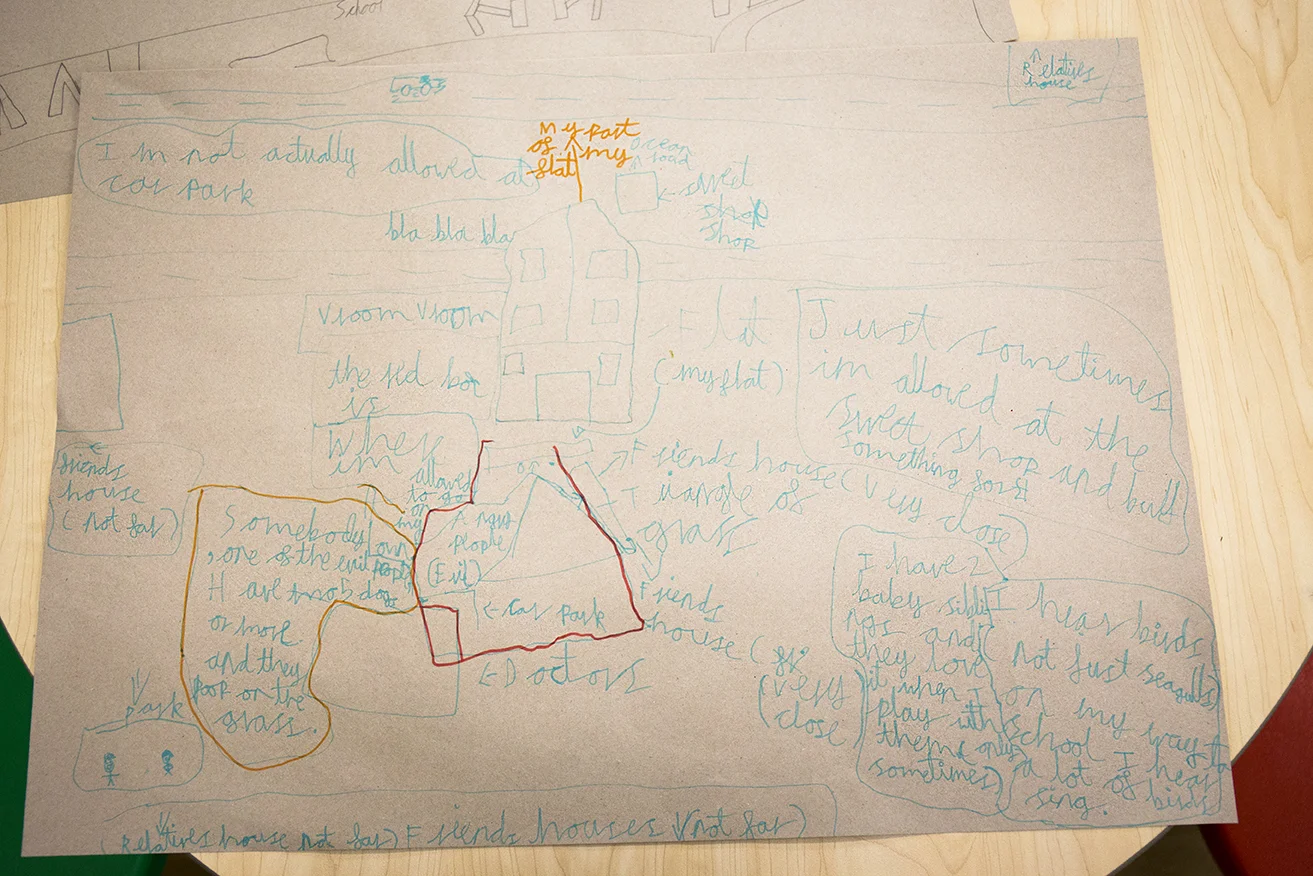 School
Relatives
house
I m not actually allowed at
car park
My part
of my
flat
ocean
road
shop
shop
bla bla bla
vroom vroom
the red
is
Flat
(my flat)
Just sometimes
im allowed at the
sweet shop and
something
Where
im
allowed
to go
on
my
own
friends
house
(not far)
Friends house (very close)
Triangle of
grass
people
(Evil)
← car park
← Doctors
Somebody
, one of the evil people
Have dog
or more
and they
poop on the
grass.
Friends
house (
(very
close)
I have 2
baby sibli
ngs and
they love
it when I
play with
them (only
sometimes)
I hear birds
(not just seagulls)
on my way to
school I hear
a lot of birds
sing.
park
(Relatives house not far) Friends houses (not far)